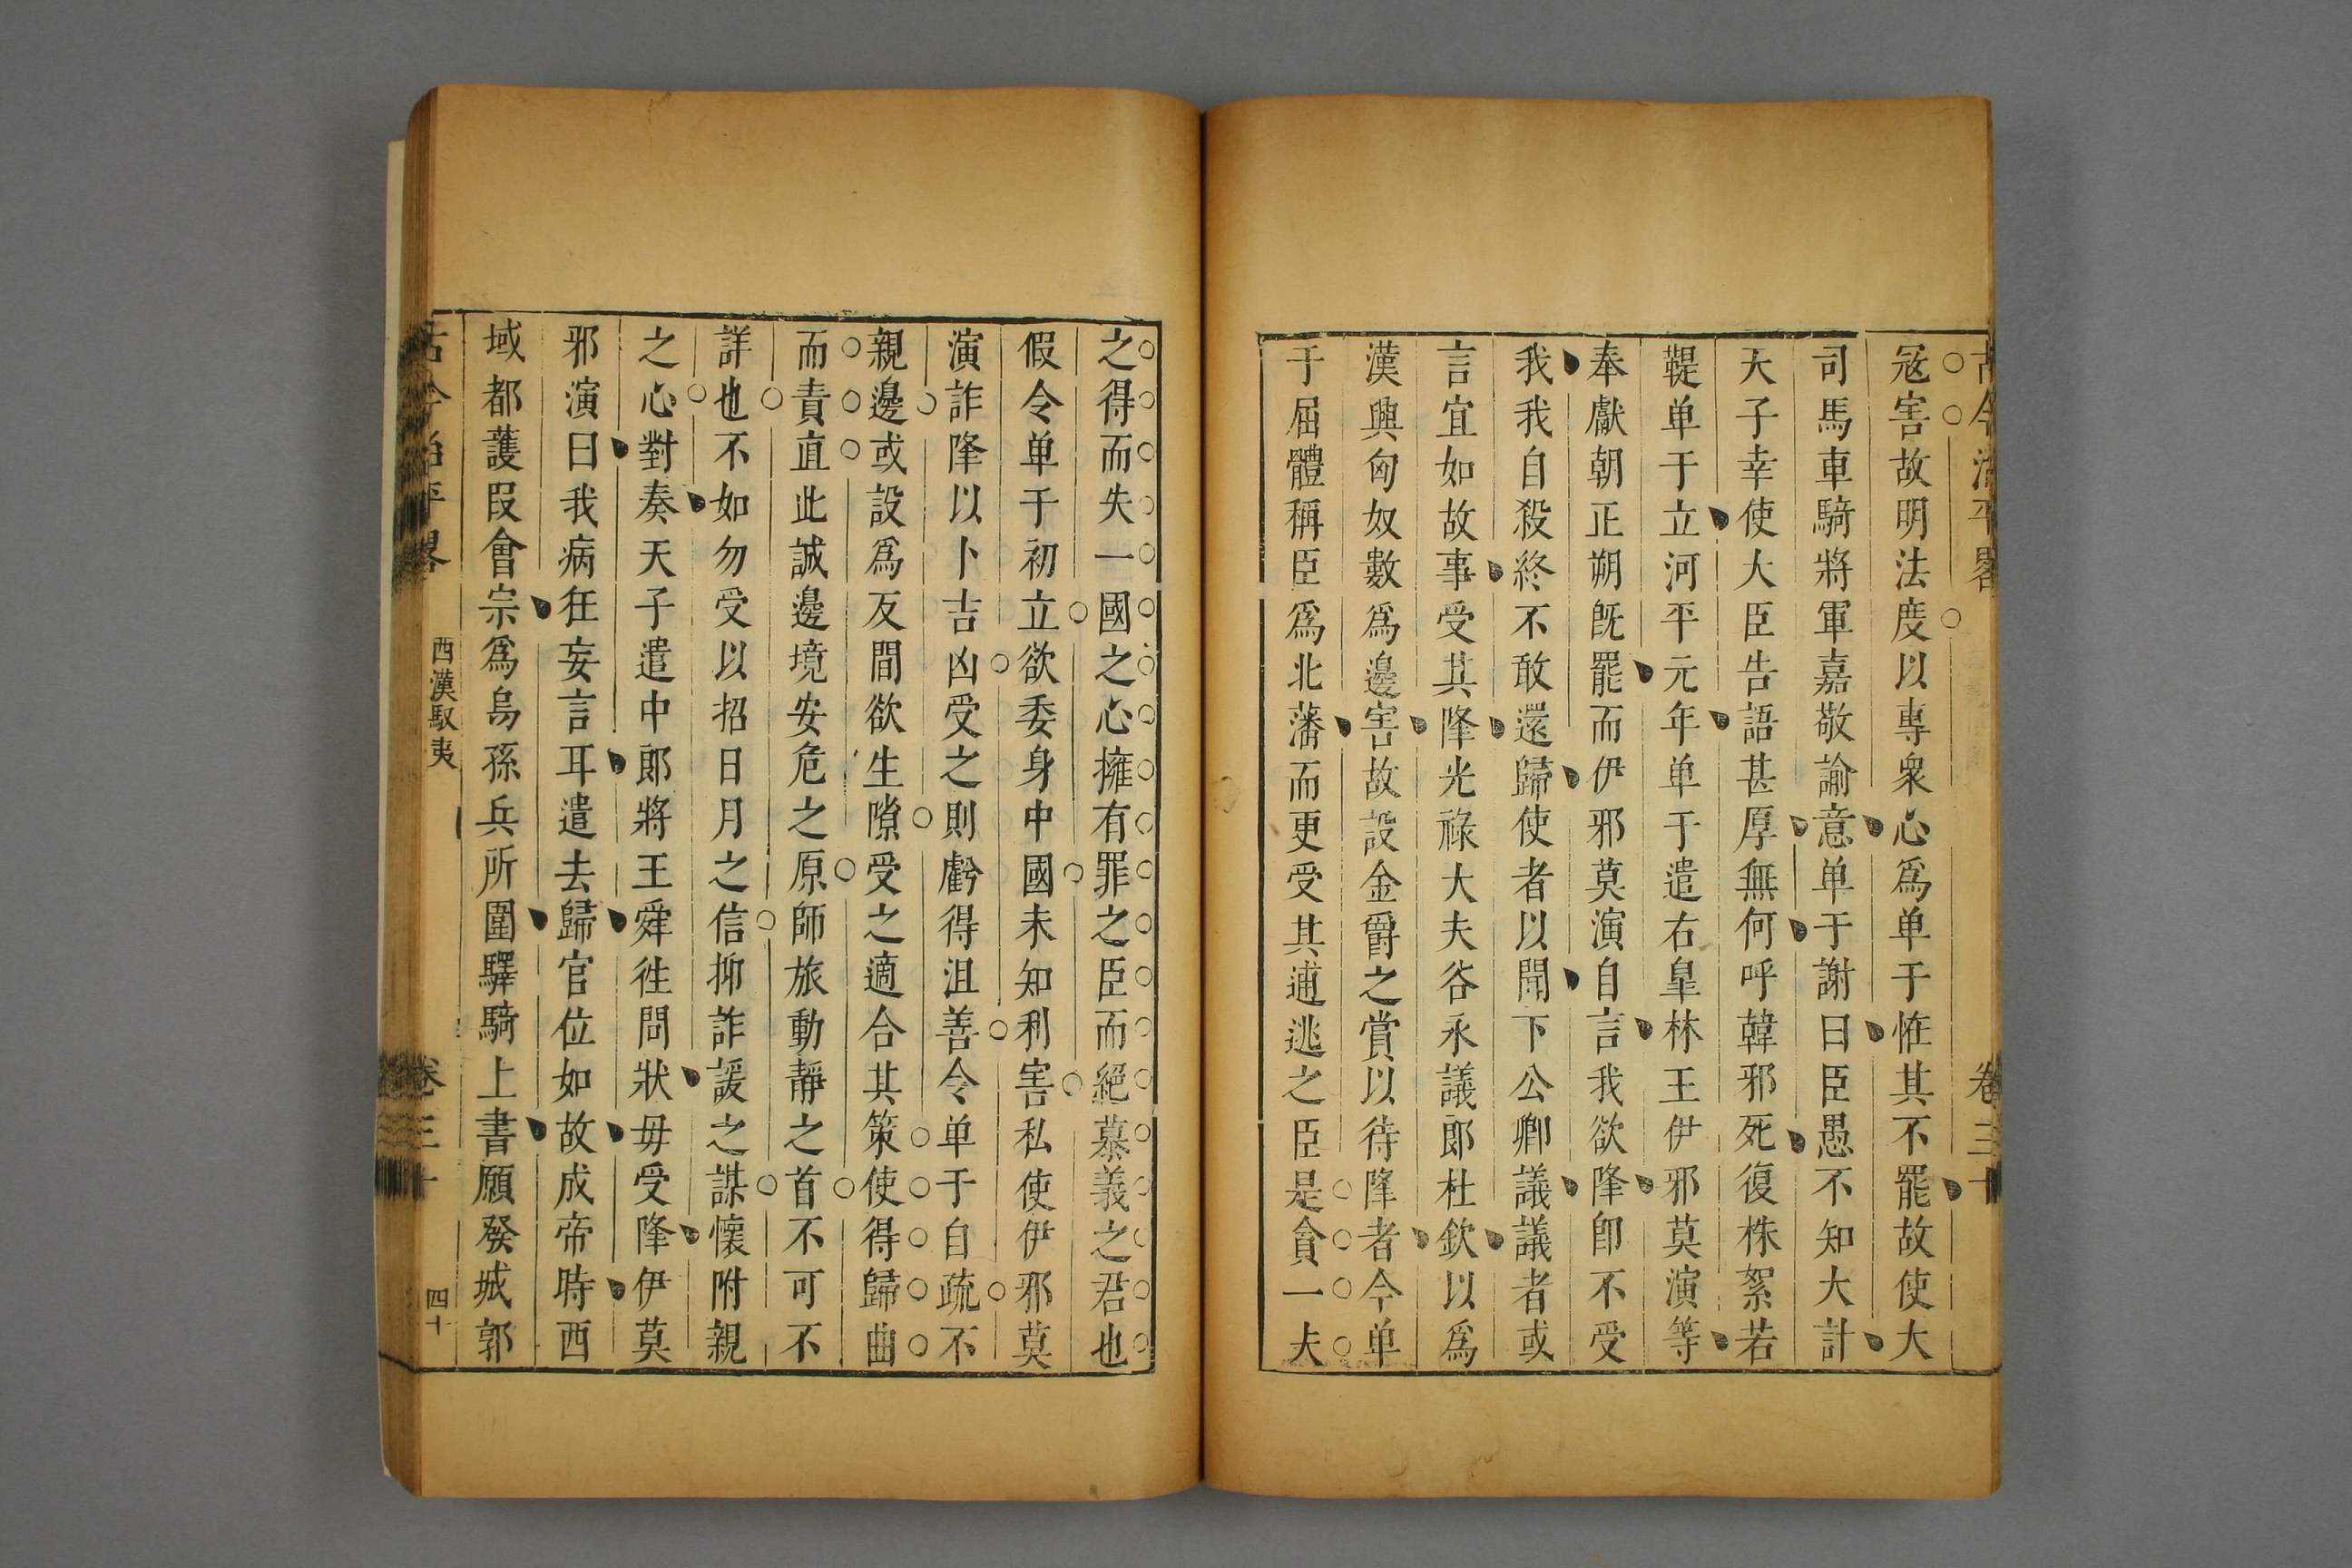 古今治平畧 卷三十
冦害故明法度以專衆心爲单于恠其不罷故使大
司馬車騎將軍嘉敬諭意单于謝曰臣愚不知大計
天子幸使大臣告語甚厚無何呼韓邪死復株絫若
鞮单于立河平元年单于遣右臯林王伊邪莫演等
奉獻朝正朔旣罷而伊邪莫演自言我欲降卽不受
我我自殺終不敢還歸使者以聞下公卿議議者或
言宜如故事受其降光祿大夫谷永議郎杜欽以爲
漢興匈奴數爲邊害故設金爵之賞以待降者今单
于屈體稱臣爲北藩而更受其逋逃之臣是貪一夫
之得而失一國之心擁有罪之臣而絕慕義之君也
假令单于初立欲委身中國未知利害私使伊邪莫
演詐降以卜吉凶受之則虧得沮善令单于自疏不
親邊或設爲反間欲生隙受之適合其策使得歸曲
而責直此誠邊境安危之原師旅動靜之首不可不
詳也不如勿受以招日月之信抑詐諼之謀懷附親
之心對奏天子遣中郎將王舜徃問狀毋受降伊莫
邪演曰我病狂妄言耳遣去歸官位如故成帝時西
域都護段會宗爲烏孫兵所圍驛騎上書願發城郭
古今治平畧 西漢馭夷 卷三十 四十